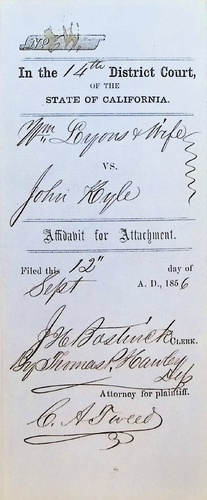 In the 14th District Court,
OF THE
STATE OF CALIFORNIA.
Wm Lyons & Wife
VS.
John Kyle
Affidavit for Attachment.
Filed this 12" day of
Sept A. D., 1856
J H Bostwick CLERK.
By Thomas P. Hawley
Dep
Attorney for plaintiff.
C. A Tweed